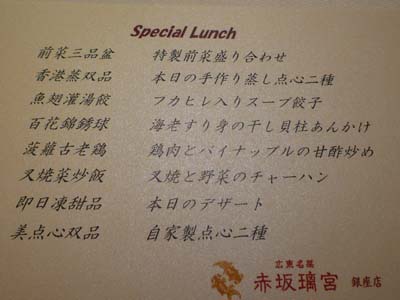 Special Lunch
前菜三品盆 特製前菜盛り合わせ
香港蒸双品 本日の手作り蒸し点心二種
魚翅灌湯餃 フカヒレ入りスープ餃子
百花錦銹球 海老すり身の干し貝柱あんかけ
菠蘿古老鶏 鶏肉とパイナップルの甘酢炒め
叉焼菜炒飯 叉焼と野菜のチャーハン
即日凍甜品 本日のデザート
美点心双品 自家製点心二種
広東名菜
赤坂璃宮 銀座店